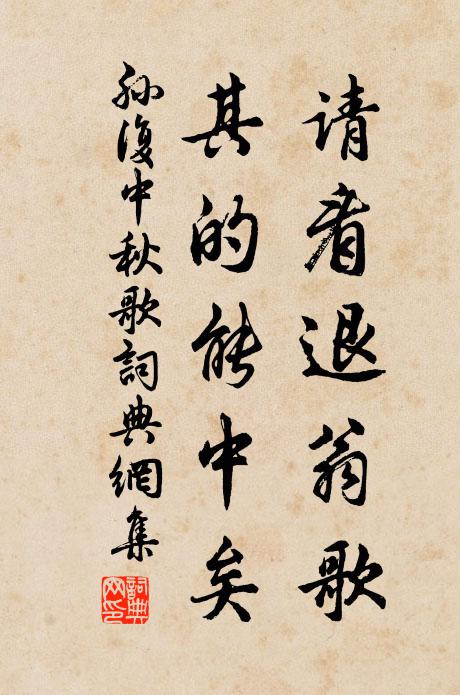 请看退翁歌
其的能中矣
孙復中秋歌詞典網集
詞典网印